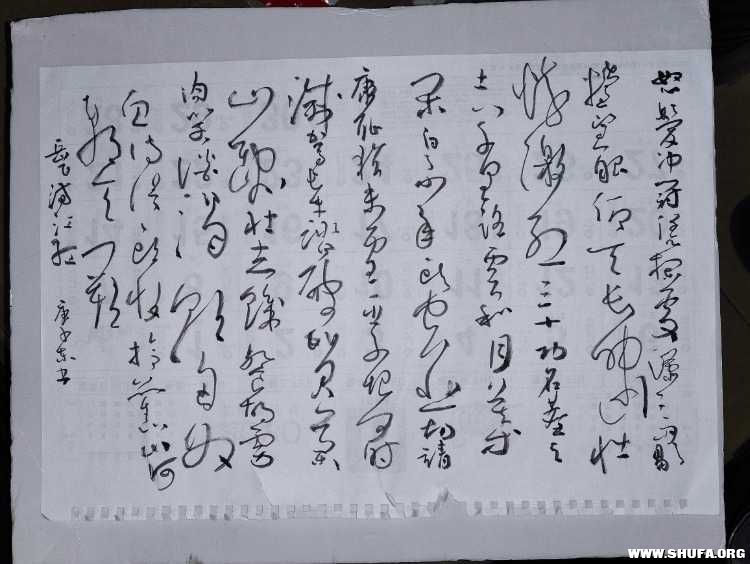 怒髮冲冠憑欄處瀟瀟雨歇
抬望眼仰天长啸壮
懷激烈三十功名塵与
土八千里路雲和月莫等
闲白了少年头空悲切靖
康耻猶未雪臣子恨何时
滅驾长车踏破贺兰
山缺壮志饑餐胡虏
肉笑谈渴飲匈奴
血待從头收拾舊山河
朝天阙
岳飞满江红 庚子冬书
WWW.SHUFA.ORG